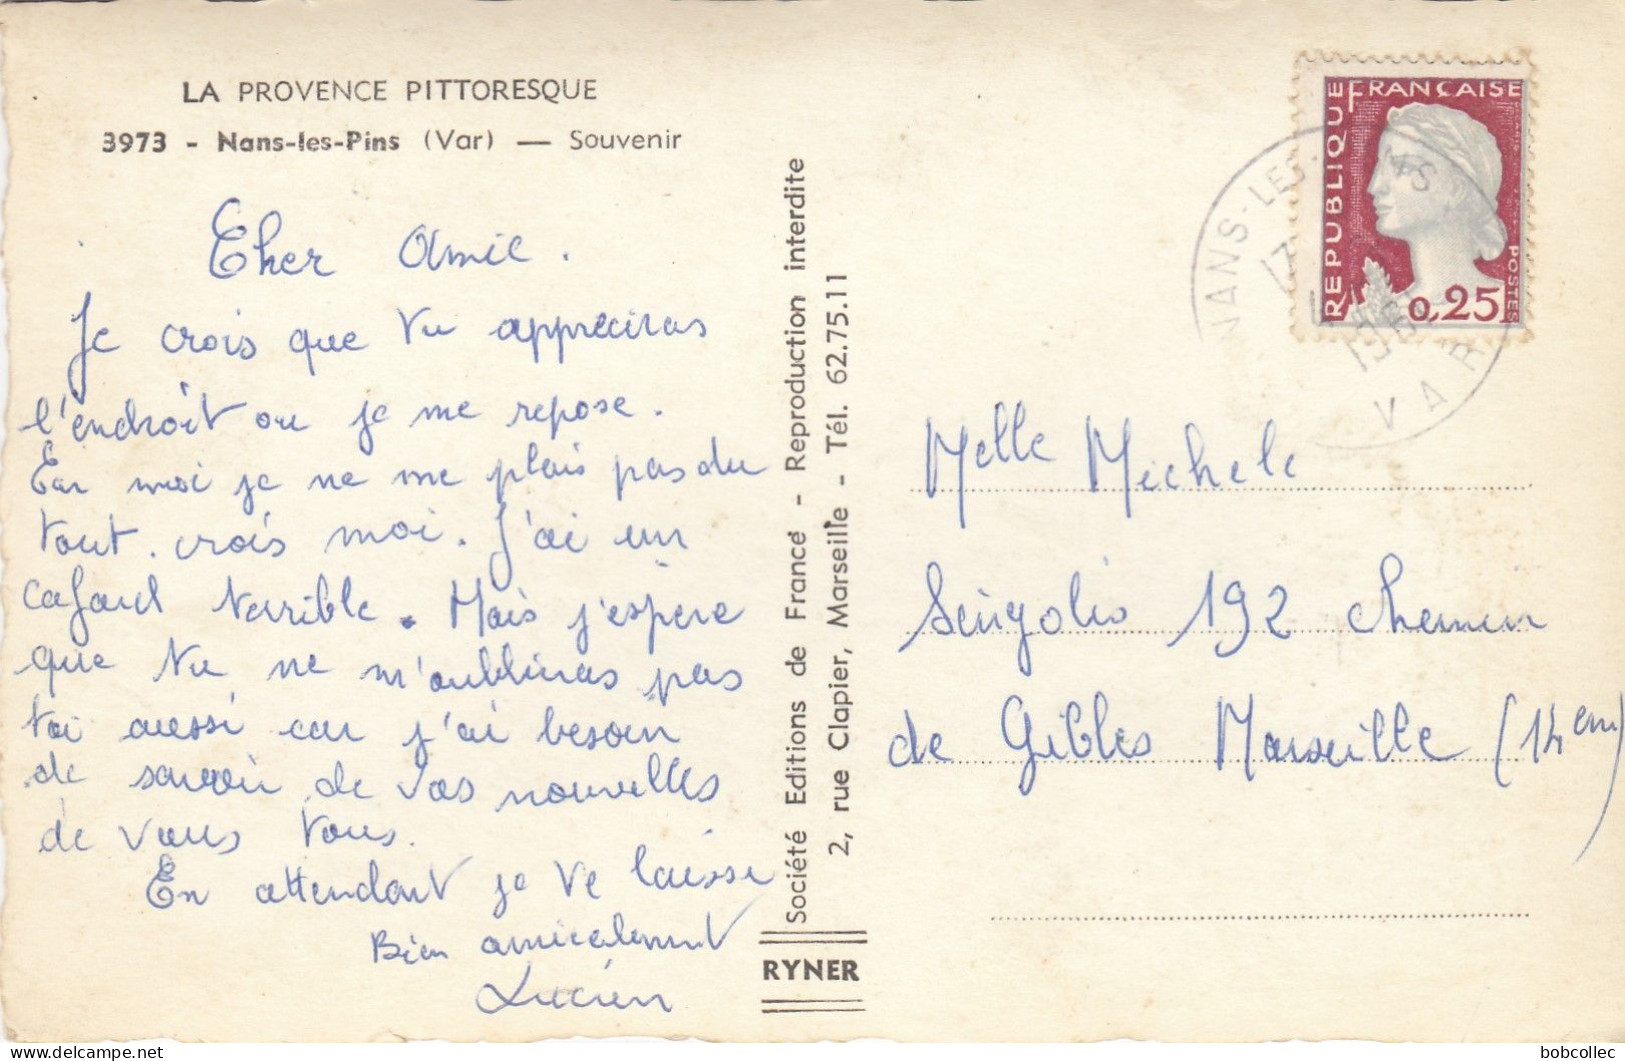 LA PROVENCE PITTORESQUE
3973 - Nans-les-Pins (Var) — Souvenir
Cher Amie.
Je crois que tu appreciras
l'endroit ou je me repose.
Car moi je ne me plais pas du
tout. crois moi. J'ai un
cafard terrible. Mais j'espere
que tu ne m'oubliras pas
toi aussi car j'ai besoin
de savoir de vos nouvelles
de vous tous.
En attendant je te laisse
Bien amicalement
Lucien
Société Editions de France - Reproduction interdite
2, rue Clapier, Marseille - Tél. 62.75.11
RYNER
REPUBLIQUE FRANÇAISE
POSTES
0,25
NANS-LES-PINS
VAR
Melle Michele
192 chemin
de Gibbes Marseille (14em)
bobcollec